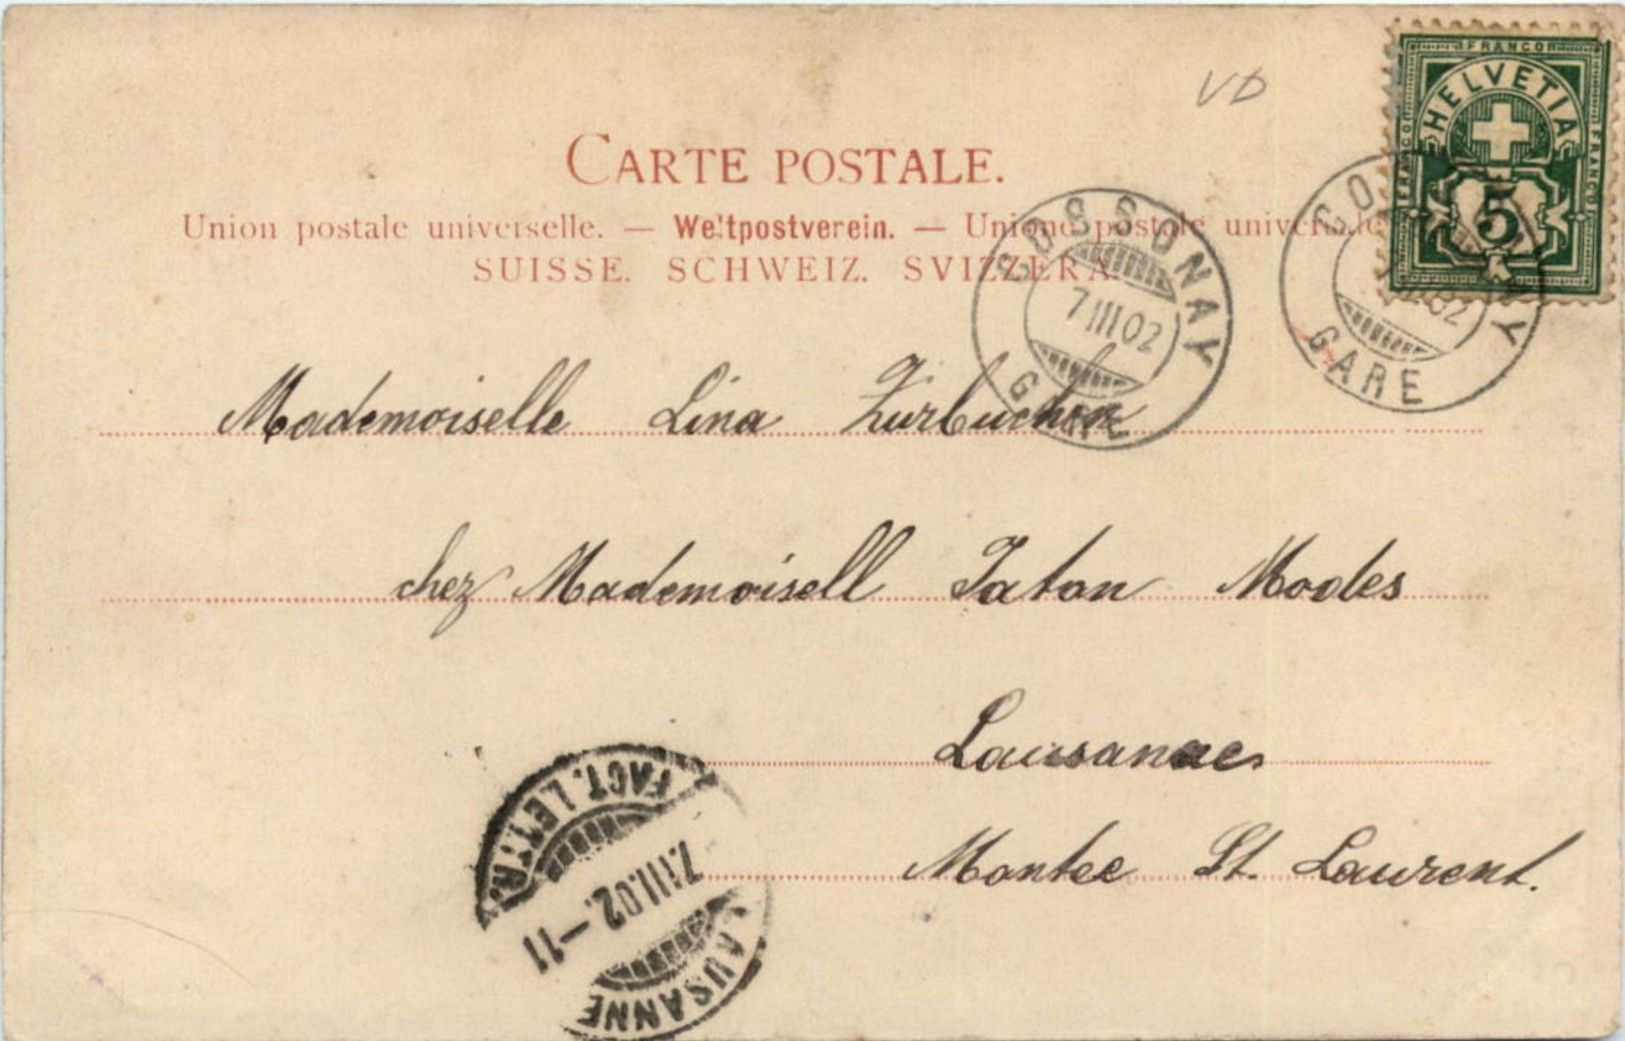 VD
FRANCO
HELVETIA
FRANCO
FRANCO
5
CARTE POSTALE.
Union postale universelle. — Weltpostverein. — Unione postale universale
SUISSE. SCHWEIZ. SVIZZERA.
COSSONAY
7 III 02
GARE
COSSONAY
GARE
Mademoiselle Lina Zurbuchen
chez Mademoisell Taton Modes
Lausanne
Montee St. Laurent.
FACT. LETTR.
7.III.02.–11
LAUSANNE